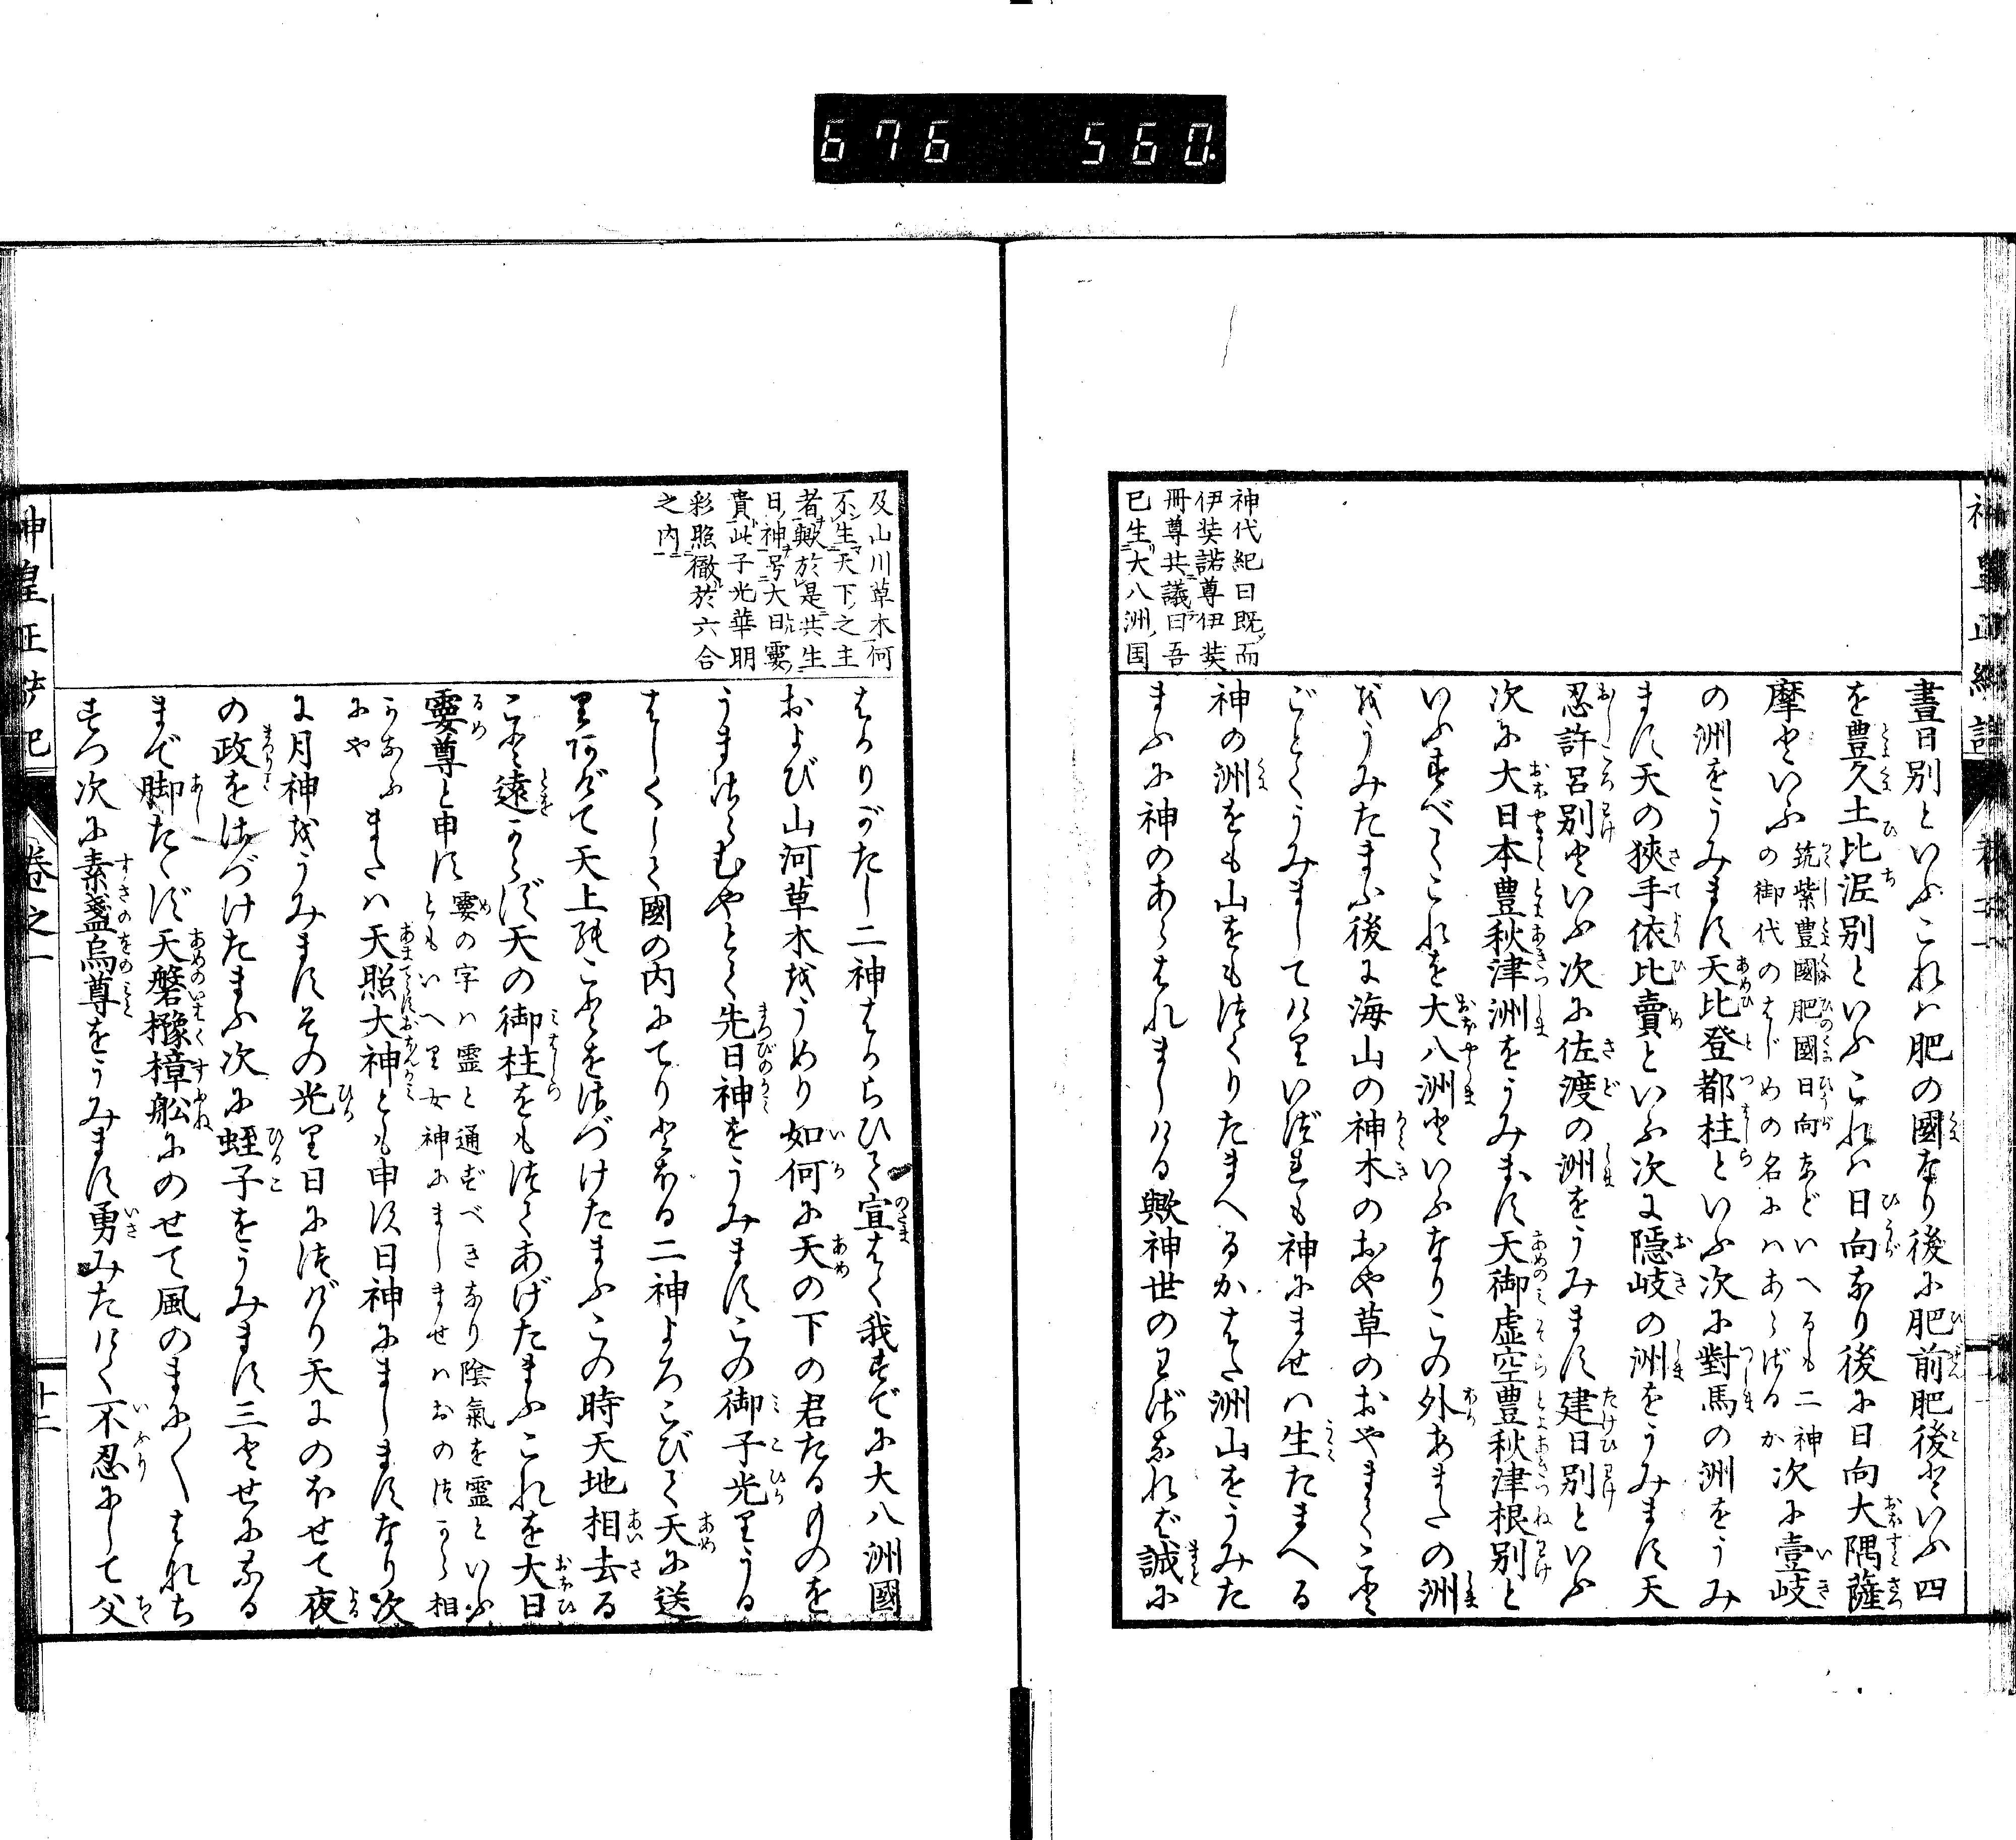 676 560
神皇正統記
卷之一
神代紀曰既而
伊弉諾尊伊弉
冊尊共議曰吾
已生大八洲国
晝日別といふこれハ肥の國なり後に肥前肥後といふ四
を豊久土比泥別といふこれハ日向なり後に日向大隅薩
摩といふ
筑紫豊國肥國日向などいへるも二神
の御代のはじめの名にハあらざるか
次に壹岐
の洲をうみます天比登都柱といふ次に對馬の洲をうみ
ます天の狹手依比賣といふ次に隱岐の洲をうみます天
忍許呂別といふ次に佐渡の洲をうみます建日別といふ
次に大日本豊秋津洲をうみます天御虚空豊秋津根別と
いふすべてこれを大八洲といふなりこの外あまたの洲
をうみたまふ後に海山の神木のおや草のおやまてこと
ごとくうみましてけりいづれも神にませハ生たまへる
神の洲をも山をもつくりたまへるかはた洲山をうみた
まふに神のあらはれましける歟神世のわざなれば誠に
及山川草木何
不生天下之主
者歟於是共生
日神号大日孁
貴此子光華明
彩照徹於六合
之内
はかりがたし二神はからひて宣はく我すでに大八洲國
および山河草木をうめり如何に天の下の君たるものを
うまざらむやとて先日神をうみますこの御子光りうる
はしくして國の内にてりとほる二神よろこびて天に送
りあげて天上のことをさづけたまふこの時天地相去る
こと遠からず天の御柱をもつてあげたまふこれを大日
孁尊と申す
孁の字ハ霊と通ずべきなり陰氣を霊といふ
ともいへり女神にましませハおのづから相
かなふ
にや
またハ天照大神とも申す日神にましますなり次
に月神をうみますその光り日につげり天にのぼせて夜
の政をさづけたまふ次に蛭子をうみます三とせになる
まで脚たたず天磐櫲樟舩にのせて風のまに〱はなち
すつ次に素盞烏尊をうみます勇みたけく不忍にして父
神皇正統記
卷之一
十二